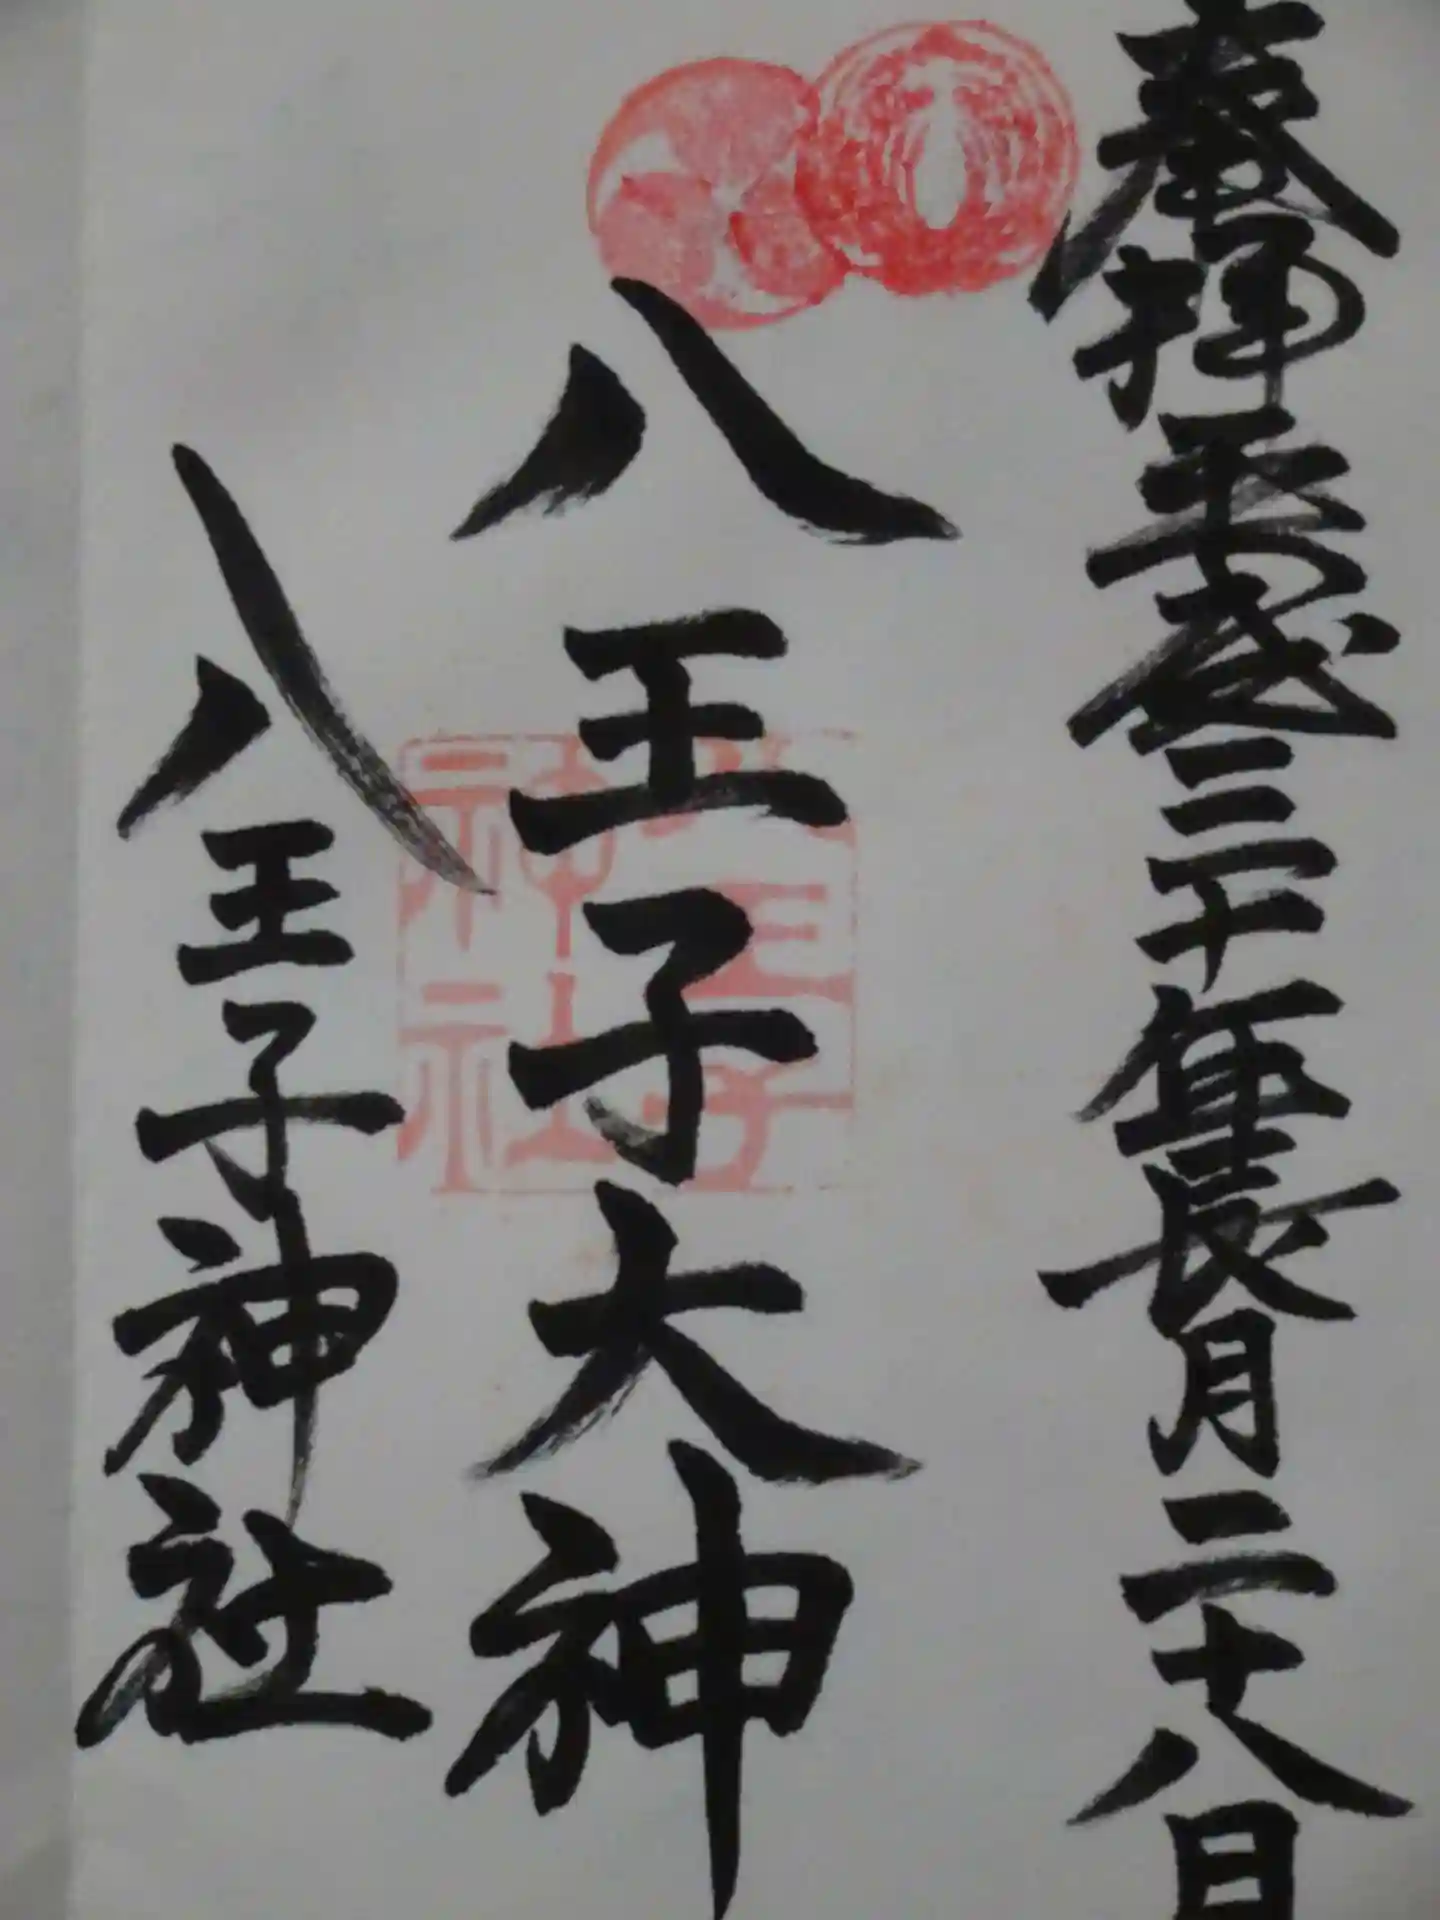 奉拝平成三十年長月二十八日
八王子大神
八王子神社
八王子神社